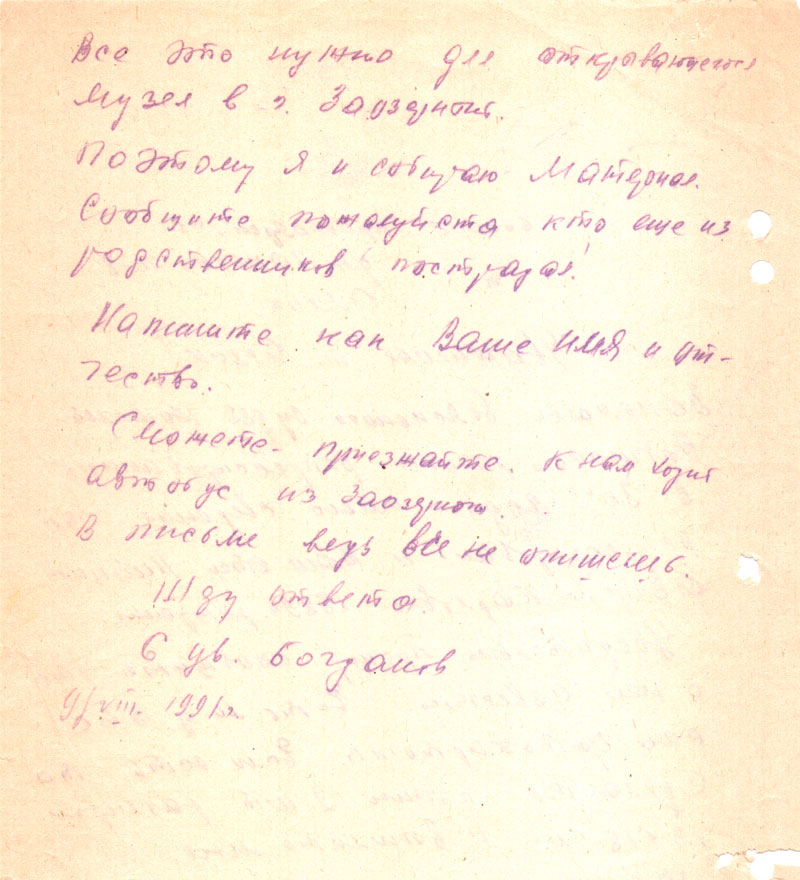 Все это нужно для открывающегося
музея в г. Заозерном.
Поэтому я и собираю материал.
Сообщите пожалуйста кто еще из
родственников пострадал.
Напишите как Ваше имя и от-
чество.
Сможете - приезжайте. К нам ходит
автобус из Заозерного.
В письме ведь все не опишешь.
Жду ответа
С ув. Богданов
9/VIII. 1991г